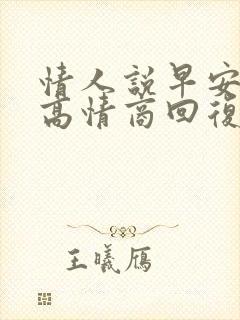 情人說早安
高情商回復
王曦雁